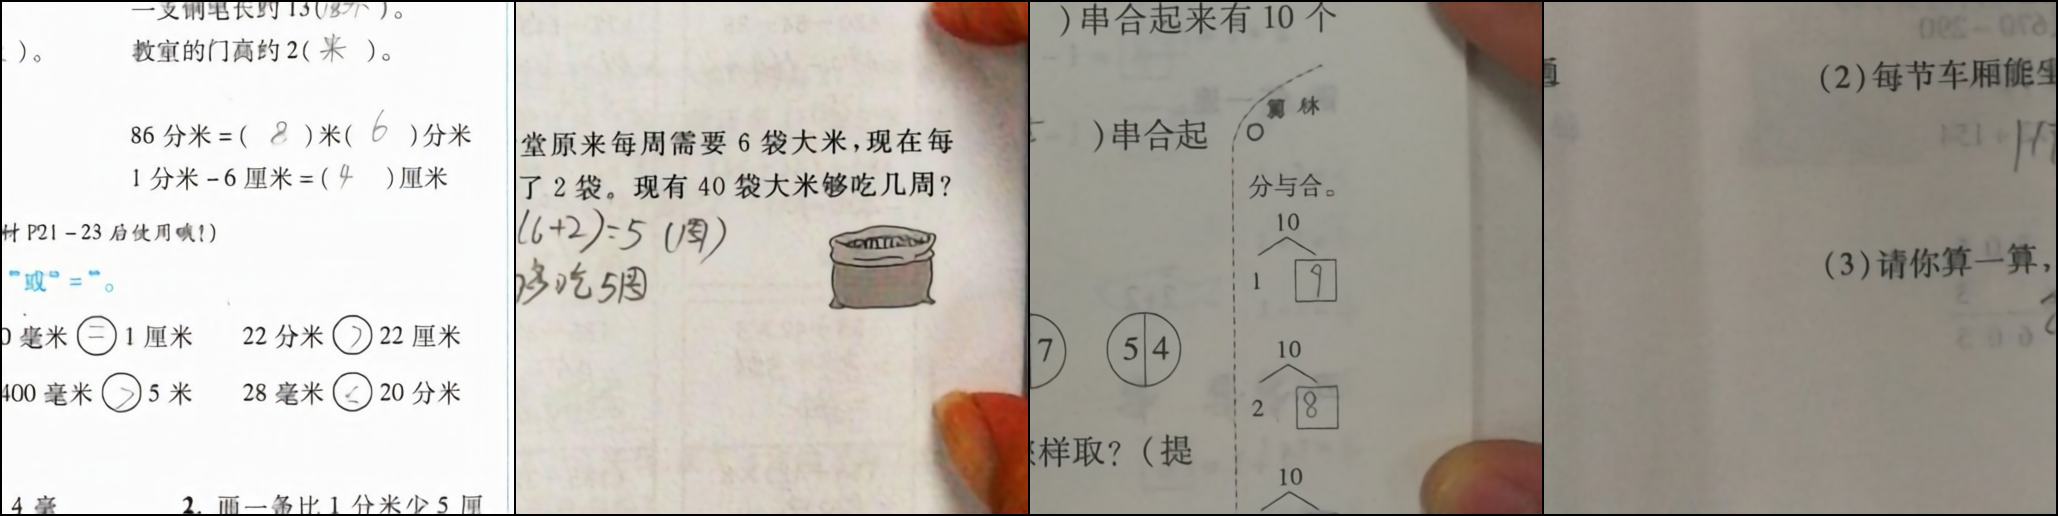 一支钢笔长约13(
)。
教室的门高约2( 米 )。
86分米=( 8 )米( 6 )分米
1分米-6厘米=( 4 )厘米
P21-23后使用哦!)
"或"="。
0毫米 = 1厘米
22分米 > 22厘米
400毫米 > 5米
28毫米 < 20分米
4毫
2. 画一条比1分米少5厘
堂原来每周需要6袋大米,现在每
了2袋。现有40袋大米够吃几周?
(6+2)=5(周)
够吃5周
)串合起来有10个
)串合起
分与合。
10
1 9
10
2 8
10
7
5 4
样取?(提
670-290
(2)每节车厢能坐
(3)请你算一算,